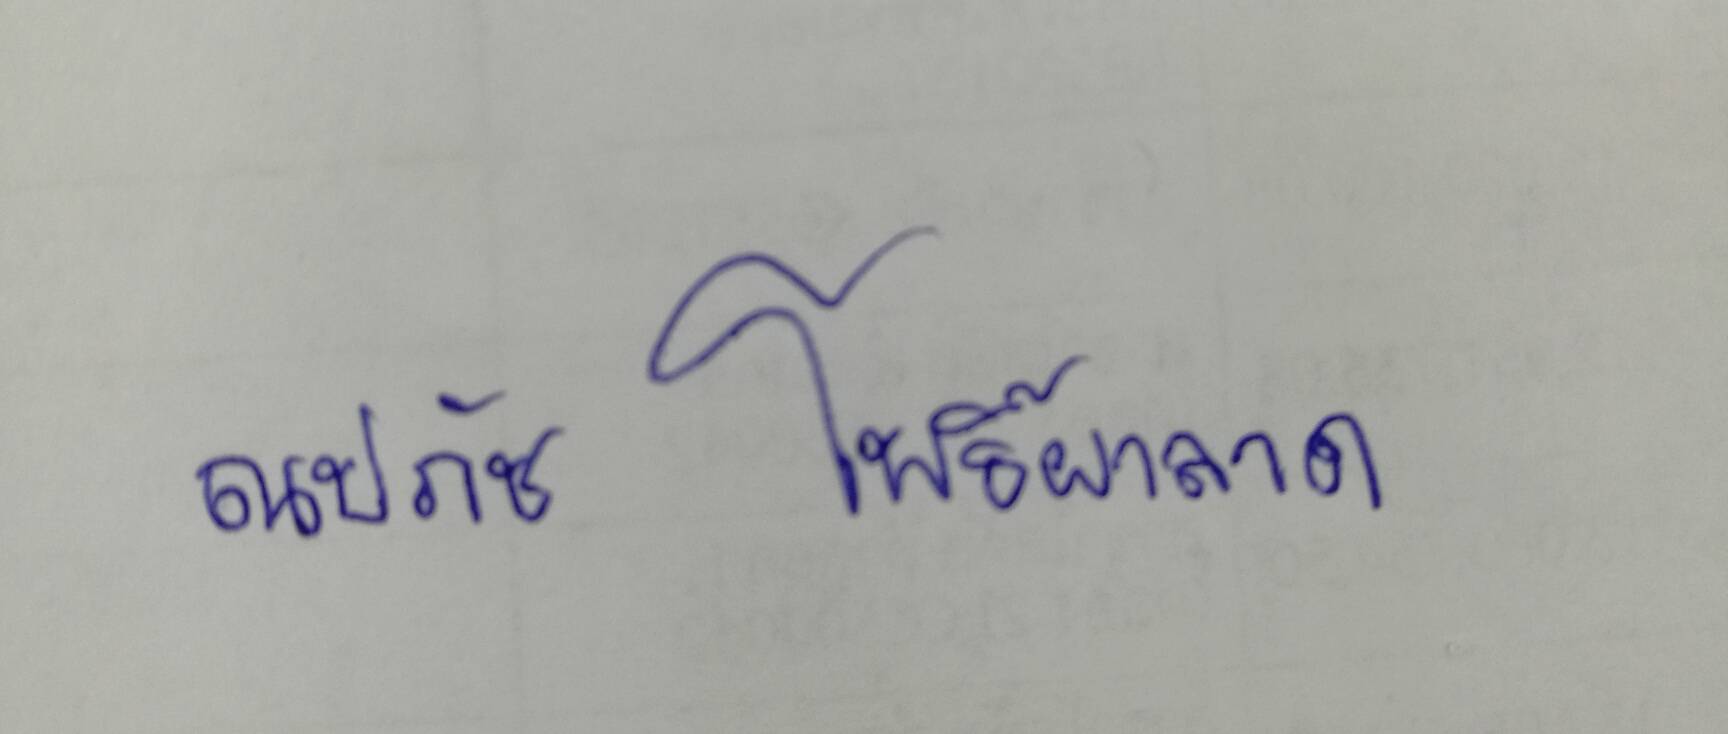 ณปภัช โพธิ์ผาลาด